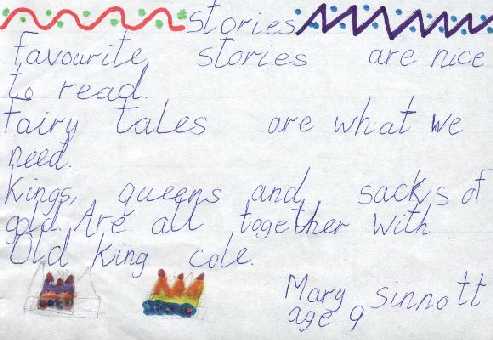 Stories
Favourite stories are nice
to read.
Fairy tales are what we
need.
Kings, queens and sacks of
gold. Are all together with
Old king cole.
Mary Sinnott
age 9